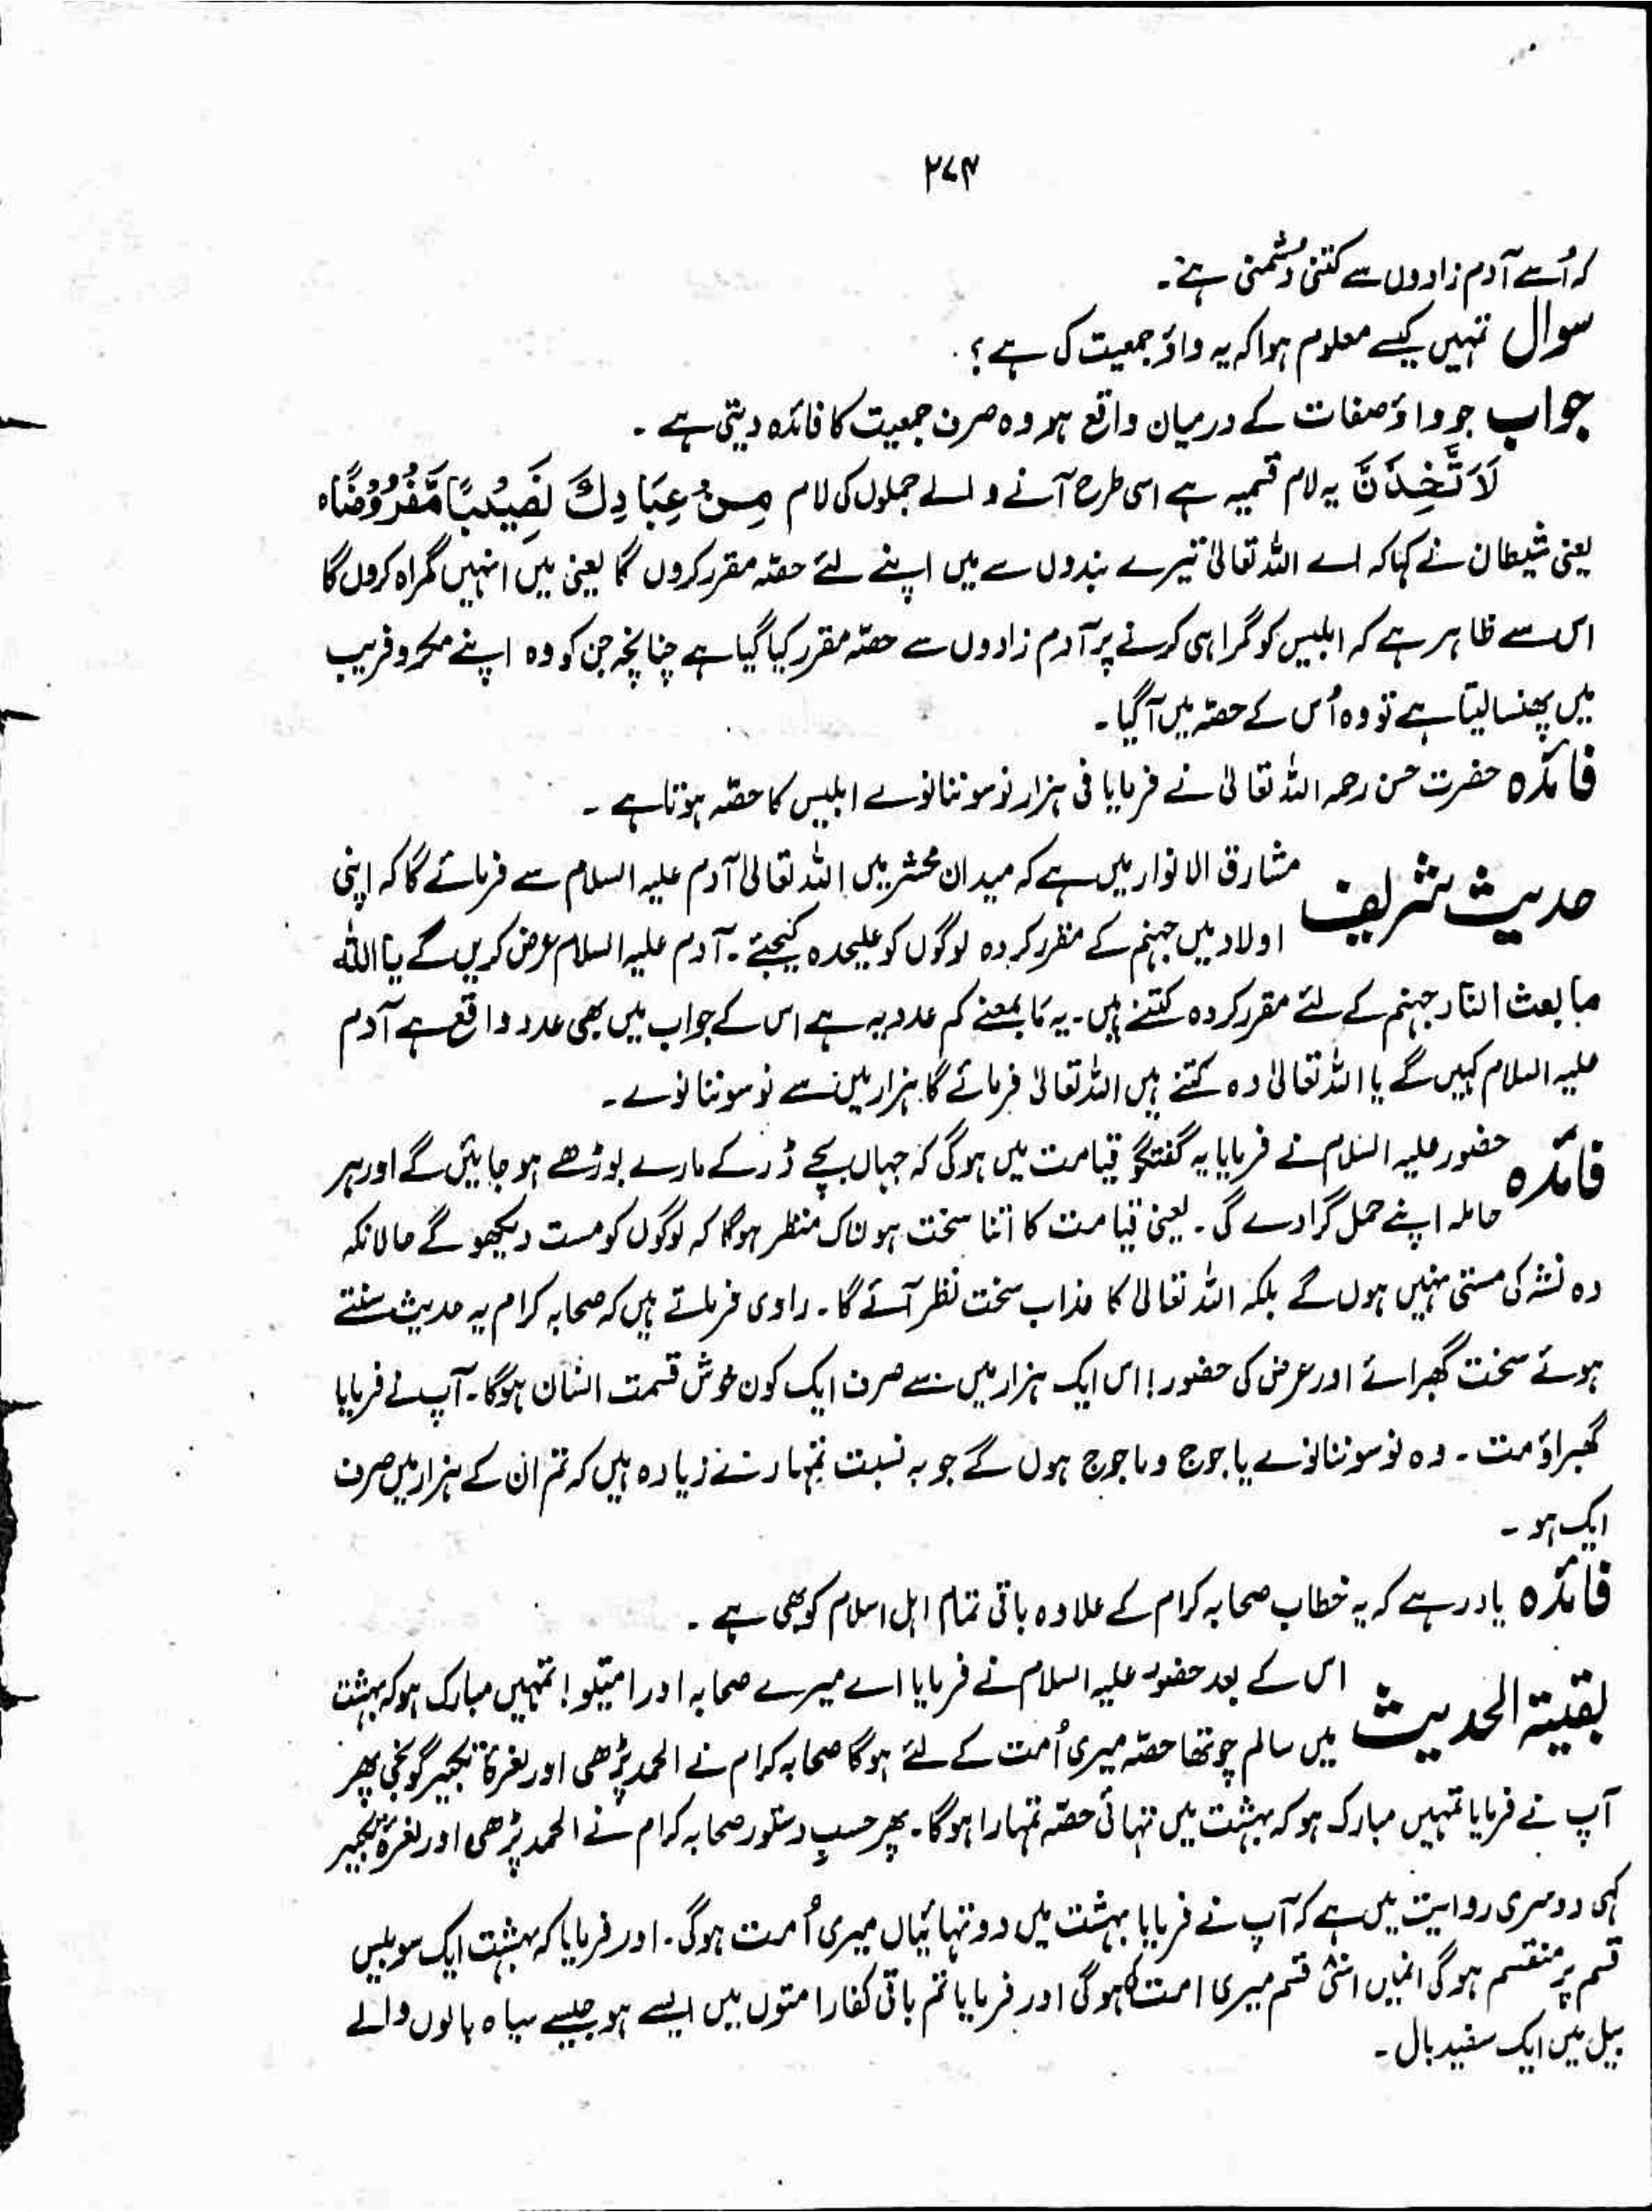 ۲۷۴
کہ اُسے آدم زادوں سے کتنی دُشمنی ہے۔
سوال تمہیں کیسے معلوم ہوا کہ یہ واؤ جمعیت کی ہے؟
جواب جو واؤ صفات کے درمیان واقع ہو وہ صرف جمعیت کا فائدہ دیتی ہے ۔
لَاَ تَّخِذَنَّ یہ لام قسمیہ ہے اسی طرح آنے والے جملوں کی لام مِنْ عِبَادِكَ نَصِيْبًا مَّفْرُوْضًاہ
یعنی شیطان نے کہا کہ اے اللہ تعالیٰ تیرے بندوں سے میں اپنے لئے حصّہ مقرر کروں گا یعنی میں انہیں گمراہ کروں گا
اس سے ظاہر ہے کہ ابلیس کو گمراہی کرنے پر آدم زادوں سے حصّہ مقرر کیا گیا ہے چنانچہ جن کو وہ اپنے مکر و فریب
میں پھنسا لیتا ہے تو وہ اُس کے حصّہ میں آگیا ۔
فائدہ حضرت حسن رحمہ اللہ تعالیٰ نے فرمایا فی ہزار نو سو ننانوے ابلیس کا حصّہ ہوتا ہے ۔
حدیث شریف مشارق الانوار میں ہے کہ میدان محشر میں اللہ تعالیٰ آدم علیہ السلام سے فرمائے گا کہ اپنی
اولاد میں جہنم کے مقرر کردہ لوگوں کو علیحدہ کیجئے ۔ آدم علیہ السلام عرض کریں گے یا اللہ
ما بعث النار جہنم کے لئے مقرر کردہ کتنے ہیں ۔ یہ مَا بمعنے کم عددیہ ہے اس کے جواب میں بھی عدد واقع ہے آدم
علیہ السلام کہیں گے یا اللہ تعالیٰ وہ کتنے ہیں اللہ تعالیٰ فرمائے گا ہزار میں سے نو سو ننانوے ۔
فائدہ حضور علیہ السّلام نے فرمایا یہ گفتگو قیامت میں ہوگی کہ جہاں بچے ڈر کے مارے بوڑھے ہو جائیں گے اور ہر
حاملہ اپنے حمل گرا دے گی ۔ یعنی قیامت کا اتنا سخت ہولناک منظر ہوگا کہ لوگوں کو مست دیکھو گے حالانکہ
وہ نشہ کی مستی نہیں ہوں گے بلکہ اللہ تعالیٰ کا عذاب سخت نظر آئے گا ۔ راوی فرماتے ہیں کہ صحابہ کرام یہ حدیث سنتے
ہوئے سخت گھبرائے اور عرض کی حضور ! اس ایک ہزار میں سے صرف ایک کون خوش قسمت انسان ہوگا ۔ آپ نے فرمایا
گھبراؤ مت ۔ وہ نو سو ننانوے یاجوج و ماجوج ہوں گے جو بہ نسبت تمہارے زیادہ ہیں کہ تم ان کے ہزار میں صرف
ایک ہو ۔
فائدہ یاد رہے کہ یہ خطاب صحابہ کرام کے علاوہ باقی تمام اہل اسلام کو بھی ہے ۔
بقیتہ الحدیث اس کے بعد حضور علیہ السلام نے فرمایا اے میرے صحابہ اور امتیو! تمہیں مبارک ہو کہ بہشت
میں سالم چوتھا حصّہ میری اُمت کے لئے ہوگا صحابہ کرام نے الحمد پڑھی اور نعرۂ تکبیر گونجی پھر
آپ نے فرمایا تمہیں مبارک ہو کہ بہشت میں تہائی حصّہ تمہارا ہوگا ۔ پھر حسبِ دستور صحابہ کرام نے الحمد پڑھی اور نعرۂ تکبیر
کہی دوسری روایت میں ہے کہ آپ نے فرمایا بہشت میں دو تہائیاں میری اُمت ہوگی ۔ اور فرمایا کہ بہشت ایک سو بیس
قسم پر منقسم ہوگی انمیں اسّی قسم میری امت کا ہوگی اور فرمایا تم باقی کفار امتوں میں ایسے ہو جیسے سیاہ بالوں والے
بیل میں ایک سفید بال ۔